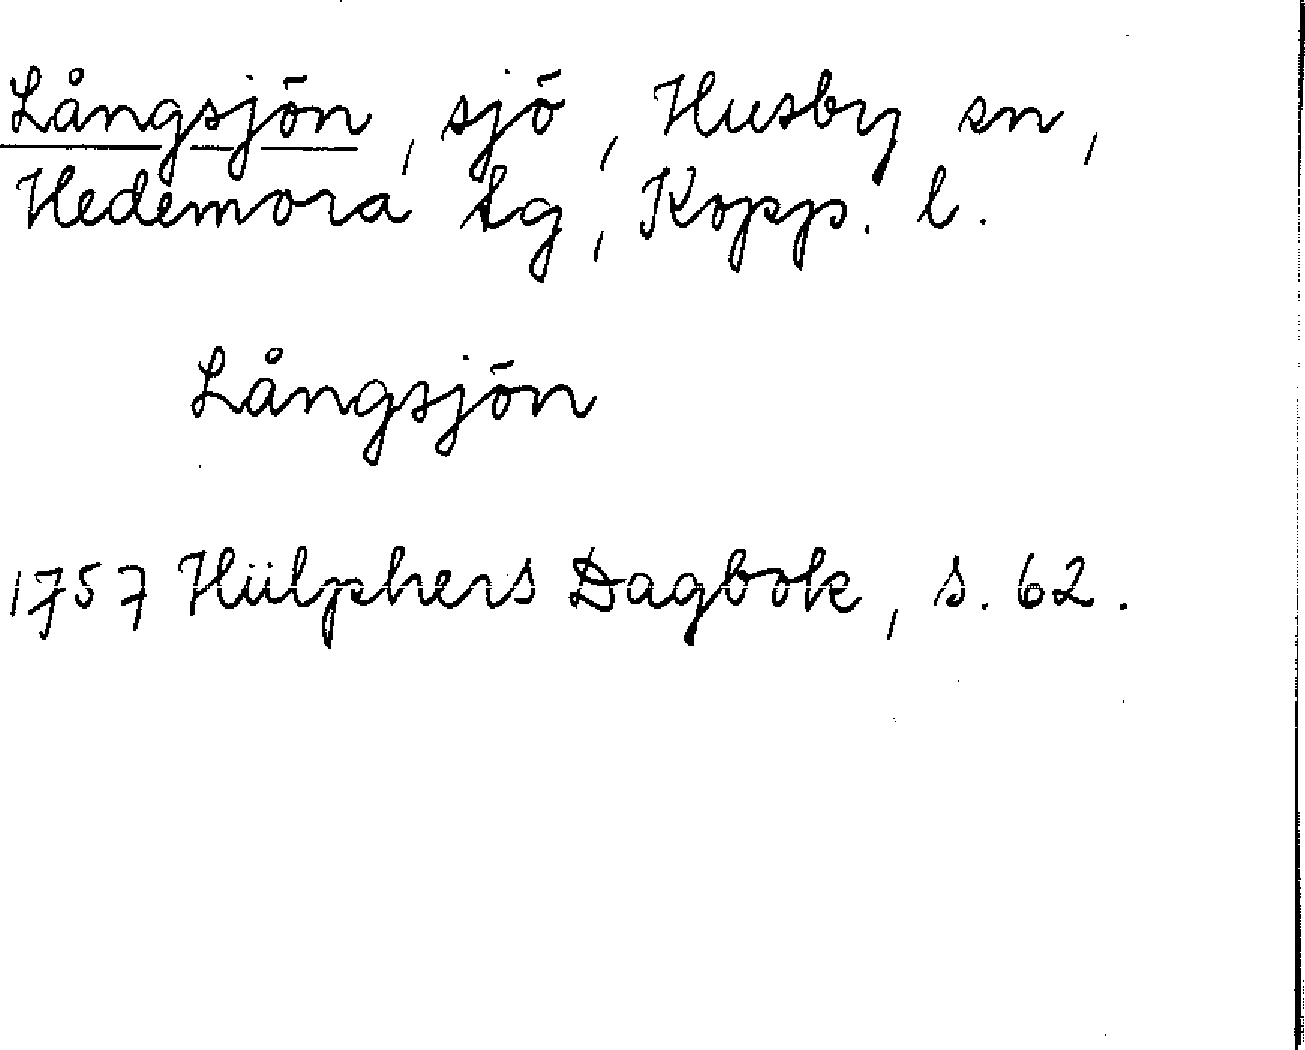 Långsjön, sjö, Husby sn,
Hedemora tg, Kopp. l.
Långsjön
1757 Hülphers Dagbok, s. 62.